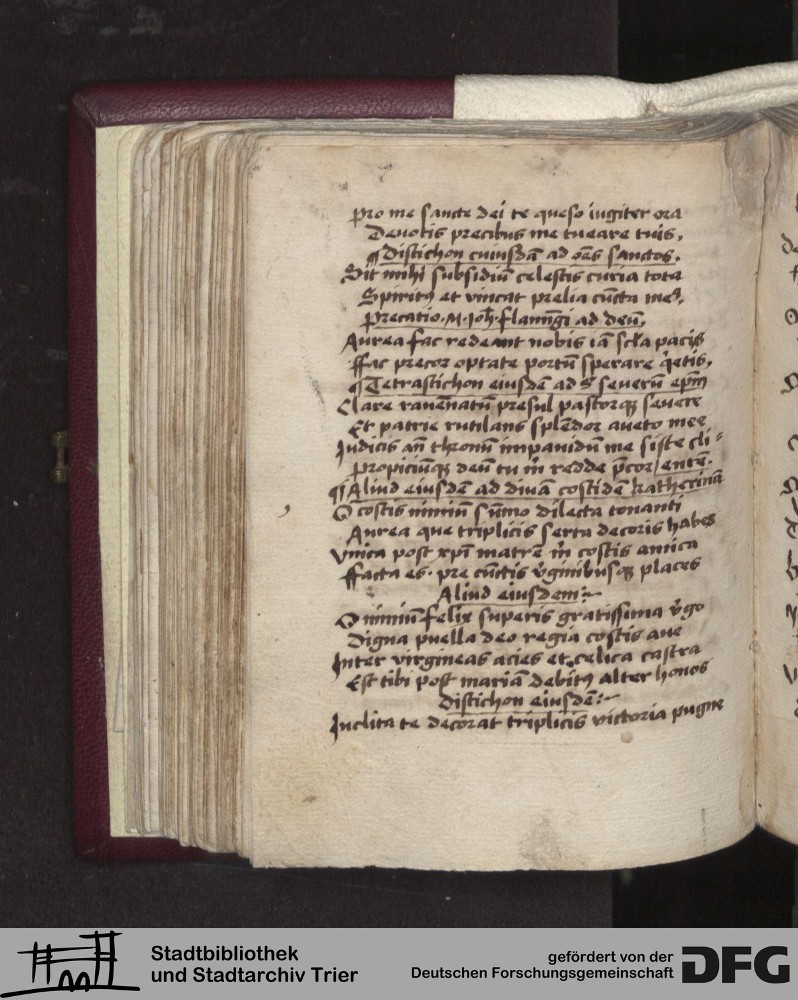 pro me sancte dei te queso iugiter ora
Deuotis precibus me tueare tuis.
¶ Distichon cuiusdā ad oēs sanctos.
Sit mihi subsidiū celestis curia tota
Spiritꝰ et vincat prelia cūcta meꝰ.
Precatio .M. Joh. flamīgi ad deū.
Aurea fac redeant nobis iā scl̄a pacis
ffac precor optate portū sperare q̇etis.
¶ Tetrastichon eiusdē ad S. seuerū ep̄m
Clare rauēnatū presul pastorqꝫ seuere
Et patrie rutilans splēdor aueto mee
Judicis an̄ thronū impauidū me siste cli-
Propiciūqꝫ deū tu m̄ redde p̄cor / entē.
¶ Aliud eiusdē ad diuā costidē katherinā
O costis nimiū sūmo dilecta tonanti
Aurea que triplicis serta decoris habes
Vnica post xp̄i matrē m̄ costis amica
ffacta es. pre cūctis v̇ginibusqꝫ places
Aliud eiusdem:~
O nimiū felix superis gratissima v̇go
Digna puella deo regia costis aue
Inter virgineas acies et celica castra
Est tibi post mariā debitꝰ alter honos
Distichon eiusdē:~
Inclita te decorat triplicis victoria pugne
Stadtbibliothek
und Stadtarchiv Trier
gefördert von der
Deutschen Forschungsgemeinschaft
DFG